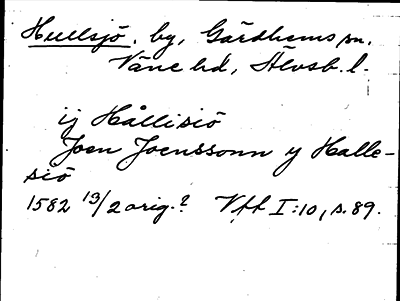 Hullsjö, by, Gärdhems sn.
Väne hd, Älvsb. l.
ij Hållisiö
Joen Joenssonn y Halle-
siö
1582 13/2 orig.? Vff I:10, s. 89.